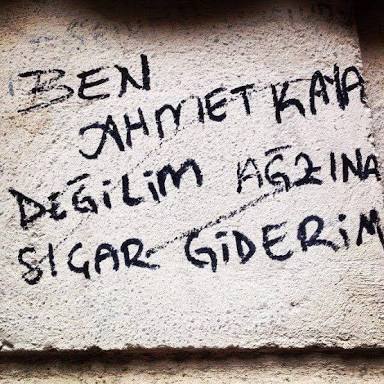 BEN
AHMET KAYA
DEĞİLİM AĞZINA
SIÇAR GİDERİM